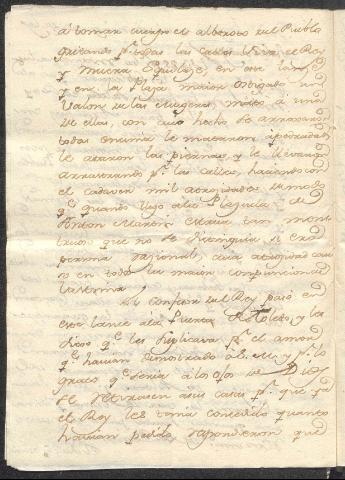 á tomar cuerpo el alboroto del Pueblo
gritando pr. todas las calles Viva el Rey
y muera Squilaze, en este lanze
y en la Plaza maior obligado un
Valon de las Mugeres, mató a una
de ellas, con cuio hecho se arrojaron
todas encima le mataron apedreado
le ataron las piernas, y le llevaron
arrastrando pr. las calles, haciendo con
el cadaver mil atrocidades de modo
qe. quando llegó a la Plazuela de
Anton Martin estava tan mons
truoso que no se distinguia si era
persona racional, cuia atrocidad cau
só en todos la maior compuncion
lastima
El confesor del Rey pasó en
este lance á la Puerta de Toledo, y les
dixo qe. les suplicava pr. el amor
qe. havian demostrado al Rey y pr. lo
grato qe. seria á los ojos de Dios
se retirasen á sus casas pr. que ya
el Rey les tenia concedido quanto
havian pedido, respondieron que